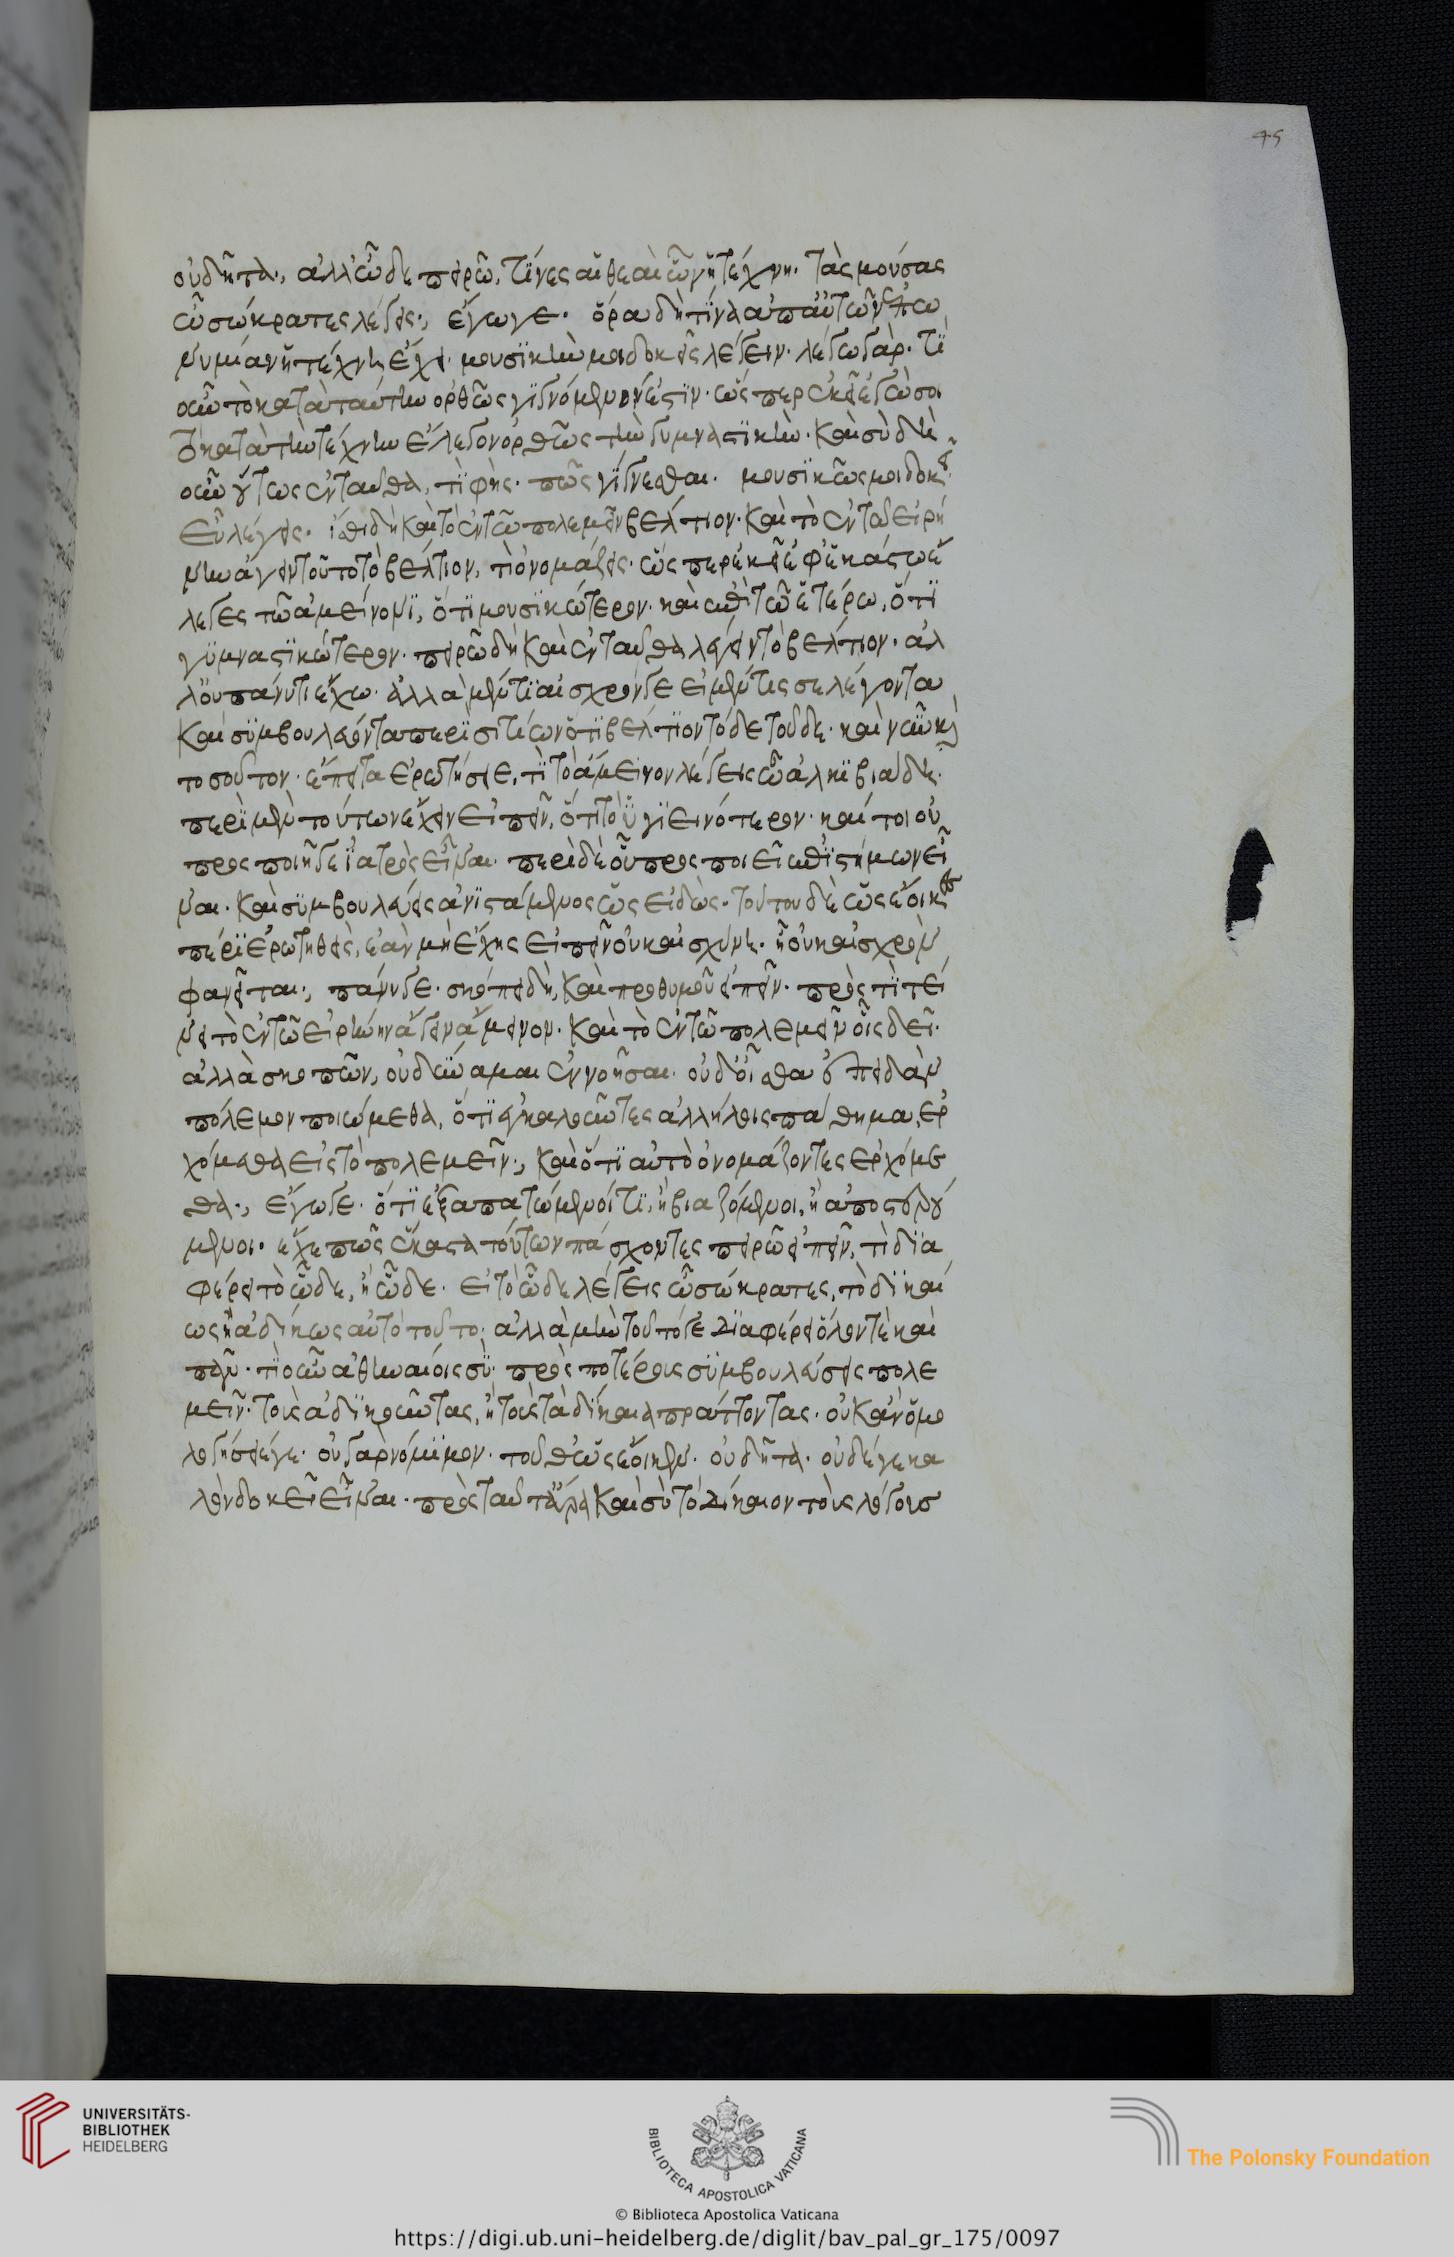 οὐδῆτα., ἀλλ' ὧδε πειρῶ, τίνες αἱ θεαὶ ὧν ἡ τέχνη. τὰς μούσας
ὦ σώκρατες λέγεις., ἔγωγε. ὅρα δὴ τίνα ἀπ' αὐτῶν ἐπω
νυμίαν ἡ τέχνη ἔχει. μουσϊκὴν μοι δοκεῖς λέγειν. λέγω γάρ. τί
οὖν τὸ κατὰ ταύτην ὀρθῶς γϊγνόμενόν ἐστϊν. ὥσπερ ἐκεῖ ἐγὼ σοι
τὸ κατὰ τὴν τέχνην ἔλεγον ὀρθῶς τὴν γυμναστϊκὴν. καὶ σὺ δὴ
οὖν οὕτως ἐνταῦθα, τὶ φὴς. πῶς γίγνεσθαι. μουσϊκῶς μοι δοκεῖ.
εὖ λέγεις. ἴθι δὴ καὶ τὸ ἐν τῶ πολεμεῖν βέλτιον. καὶ τὸ ἐν τῶ εἰρή
νην ἄγειν τοῦτο τὸ βέλτιον, τὶ ὀνομάζεις. ὥσπερ ἐκεῖ ἐφ' ἑκάστω ἔ
λεγες τῶ ἀμείνονϊ, ὅτϊ μουσϊκώτερον. καὶ ἐπὶ τῶ ἑτέρω, ὅτϊ
γϋμναστϊκώτερον. πειρῶ δὴ καὶ ἐνταῦθα λέγειν τὸ βέλτιον. ἀλ
λ' οὐ πάνυ τι ἔχω. ἀλλὰ μέν τϊ αἰσχρόν γε εἰ μέν τις σε λέγοντα
καὶ συμβουλεύοντα περὶ σιτίων ὅτϊ βέλτϊον τόδε τοῦδε. καὶ νῦν καὶ
τοσοῦτον. ἔπειτα ἐρωτήσειε, τὶ τὸ ἄμεινον λέγεις ὦ ἀλκϊβιάδη.
περὶ μὲν τούτων ἔχειν εἰπεῖν, ὅτι τὸ ὑγϊεινότερον. καί τοι οὐ
προσποιῆ γε ἰατρὸς εἶναι. περὶ δὲ οὗ προσποιεῖ ἐπϊστήμων εἶ
ναι. καὶ σϋμβουλεύεις ἀνϊστάμενος ὡς εἰδὼς. τούτου δὲ ὡς ἔοικας
πέρϊ ἐρωτηθεὶς, ἐὰν μὴ ἔχης εἰπεῖν οὐκ αἰσχύνη. ἢ οὐκ αἰσχρὸν
φανεῖται., πάνυ γε. σκόπει δὴ, καὶ προθυμοῦ εἰπεῖν. πρὸς τὶ τεί
νει τὸ ἐν τῶ εἰρήνην ἄγειν ἄμεινον. καὶ τὸ ἐν τῶ πολεμεῖν οἷς δεῖ.
ἀλλὰ σκοπῶν, οὐ δύναμαι ἐννοῆσαι. οὐδ' οἶσθα ὅτ' ἐπειδὰν
πόλεμον ποιώμεθα, ὅτϊ ἐγκαλοῦντες ἀλλήλοις πάθημα, ἐρ
χόμεθα εἰς τὸ πολεμεῖν., καὶ ὅτϊ αὐτὸ ὀνομάζοντες ἐρχόμε
θα., ἔγωγε. ὅτϊ ἐξαπατώμενοί τϊ, ἢ βιαζόμενοι, ἢ ἀποστερού
μενοι. ἔχε πῶς ἕκαστα τούτων πάσχοντες πειρῶ εἰπεῖν, τὶ δϊα
φέρει τὸ ὧδε, ἢ ὧδε. εἰ τὸ ὧδε λέγεις ὦ σώκρατες, τὸ δϊκαί
ως ἢ ἀδίκως αὐτὸ τοῦτο. ἀλλὰ μὴν τοῦτό γε διαφέρει ὅλον τὲ καὶ
πᾶν. τὶ οὖν ἀθηναίοις σϋ πρὸς ποτέρους σϋμβουλεύσεις πολε
μεῖν. τοὺς ἀδϊκοῦντας, ἢ τοὺς τὰ δίκαια πράττοντας. οὐκ ἂν ὁμο
λογήσειέ γε. οὐ γὰρ νόμϊμον. τοῦθ' ὡς ἔοικεν. οὐ δῆτα. οὐδέ γε κα
λόν δοκεῖ εἶναι. πρὸς ταῦτ' ἄρα καὶ σὺ τὸ δίκαιον τοὺς λόγουσ
45
UNIVERSITÄTS-
BIBLIOTHEK
HEIDELBERG
BIBLIOTECA APOSTOLICA VATICANA
© Biblioteca Apostolica Vaticana
The Polonsky Foundation
https://digi.ub.uni-heidelberg.de/diglit/bav_pal_gr_175/0097